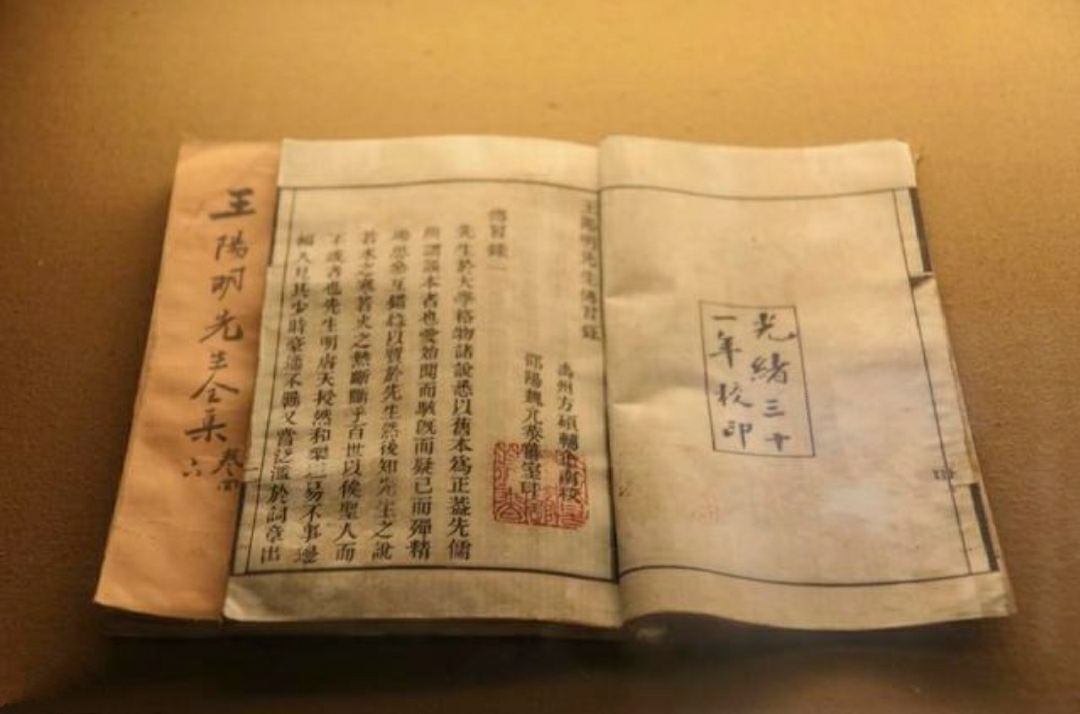 光緒三十
一年校印
王陽明先生傳習錄
州方碩輔校
邵陽魏
傳習錄一
先生於大學格物諸說悉以舊本爲正蓋先儒
所謂誤本者也愛始聞而駭旣而疑已而殫精
竭思參互錯綜以質於先生然後知先生之說
若水之寒若火之熱斷斷乎百世以俟聖人而
不惑者也先生明睿天授然和樂坦易不事邊
幅人見其少時豪邁不羈又嘗泛濫於詞章出
王陽明先生全集
卷四
六